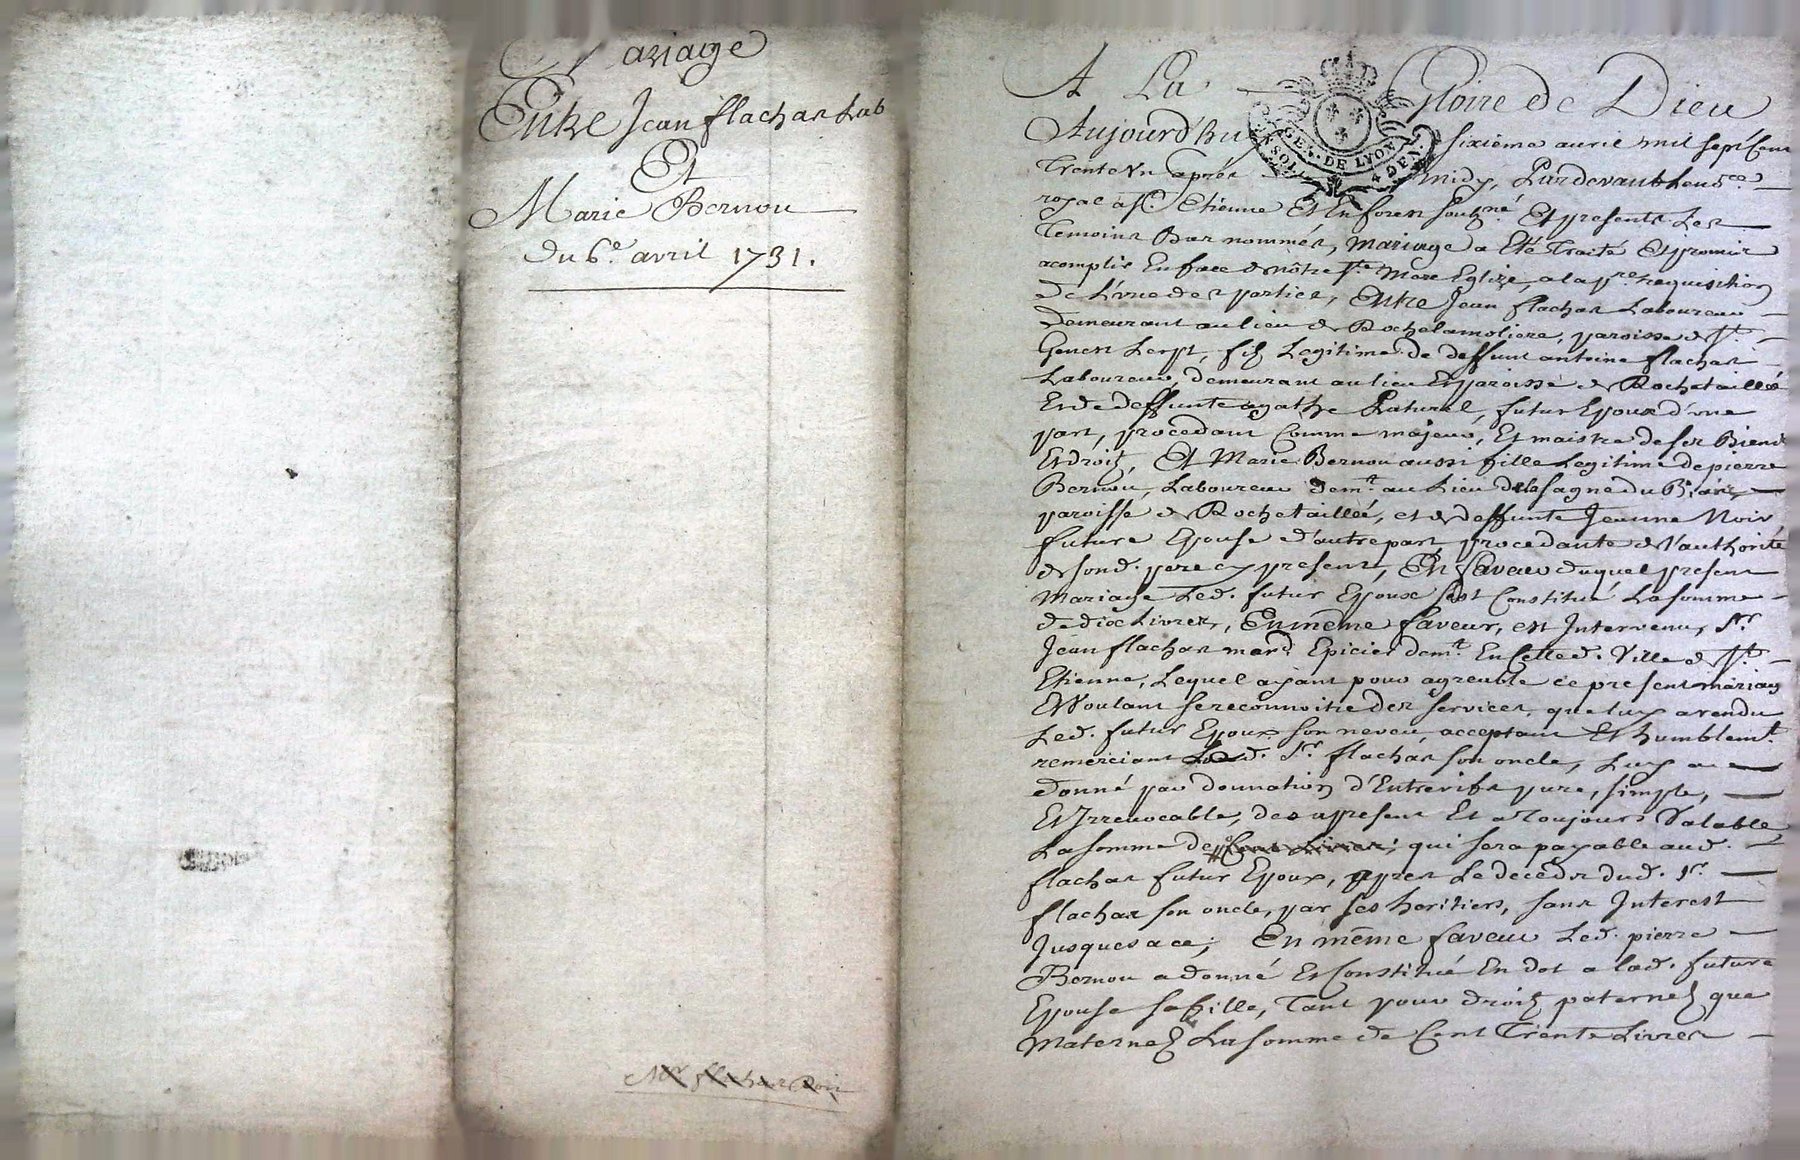 Mariage
Entre Jean flachar Lab
Et
Marie Bernou
Du 6e. avril 1731.
Mr flachar Doit
A La Gloire de Dieu
GEN. DE LYON
4 DEN.
Aujourd'huy sixième avril mil sept Cent
Trente Un après midy, Pardevant le no.re
royal a St. Etienne Et En forest soubz.né Et presents Les
Temoins Bas nommés, Mariage a Eté Traité Et promis
acomplir En face de nôtre Ste Mere Eglize, a la p.re requisition
De L'une des parties, Entre Jean flachar Laboureur
Demeurant au lieu de Rochelamoliere, paroisse de St.
Genest Lerpt, filz Legitime de deffunt antoine flachar
Laboureur, demeurant au lieu Et paroisse de Rochetaillée
Et de deffunte agathe Paturel, futur Epoux d'une
part, procedant Comme majeur, Et maistre de ses Biens
Et droitz, Et Marie Bernou aussi fille Legitime de pierre
Bernou, Laboureur dem.t au Lieu de la sagne du
paroisse de Rochetaillée, et de deffunte Jeanne Noir
future Epouse d'autre part procedante de l'authorité
de sond. pere cy present, En faveur duquel present
Mariage Led. futur Epoux s'est Constitué La somme
de dix Livres, En même faveur, est Intervenu, Sr.
Jean flachar march.d Epicier dem.t En Cetted. Ville de St.
Etienne, Lequel ayant pour agreable ce present mariage
Et Voulant se reconnoitre des services, que luy a rendu
Led. futur Epoux son neveu, acceptant Et humblem.t
remerciant Led. Sr. flachar son oncle, Luy a
donné par donnation d'Entrevifs pure, simple,
Et Irrevocable, des apresent Et a Toujours Valable,
La somme de Cent Livres, qui sera payable aud.
flachar futur Epoux, apres Le decedz dud. Sr.
flachar son oncle, par ses heritiers, sans Interest
Jusques a ce; En même faveur Led. pierre
Bernou a donné Et Constitué En dot a lad. future
Epouse sa fille, Tant pour droitz paternelz que
Maternelz La somme de Cent Trente Livres